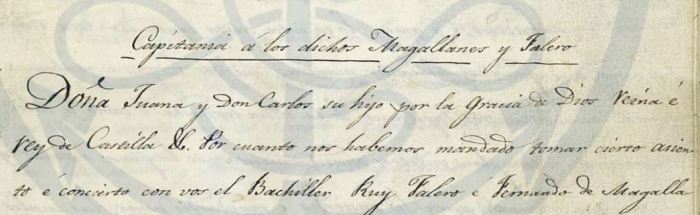 Capitania á los dichos Magallanes y Falero
Doña Juana y Don Carlos su hijo por la Gracia de Dios reina é
rey de Castilla &. Por cuanto nos habemos mandado tomar cierto asien
to é concierto con vos el Bachiller Ruy Falero é Fernando de Magalla